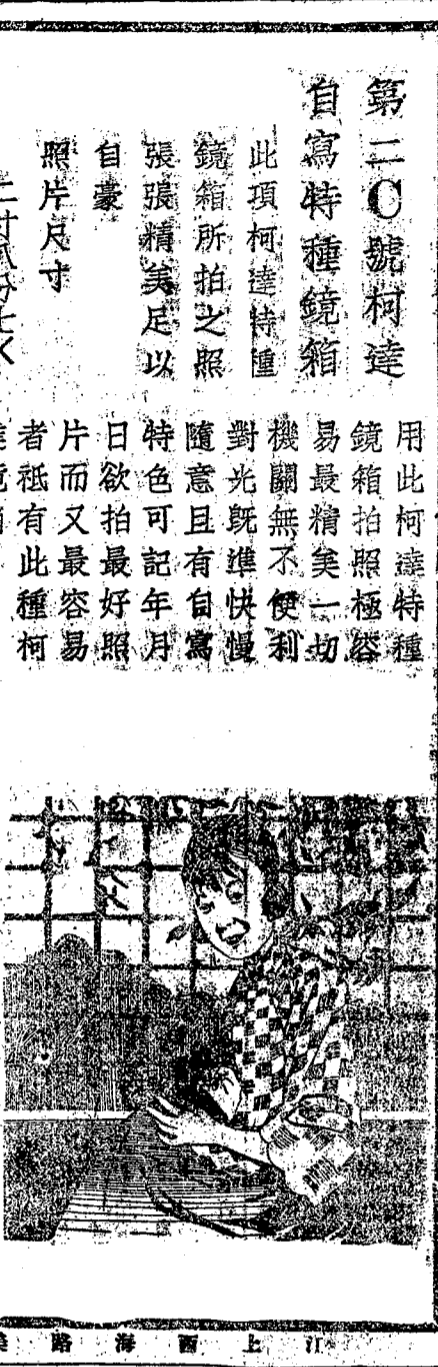 第二C號柯達
自寫特種鏡箱
此項柯達特種
鏡箱所拍之照
張張精美足以
自豪
照片尺寸
用此柯達特種
鏡箱拍照極容
易最精矣一切
機關無不便利
對光既準快慢
隨意且有自寫
特色可記年月
日欲拍最好照
片而又最容易
者祗有此種柯
江上西海路